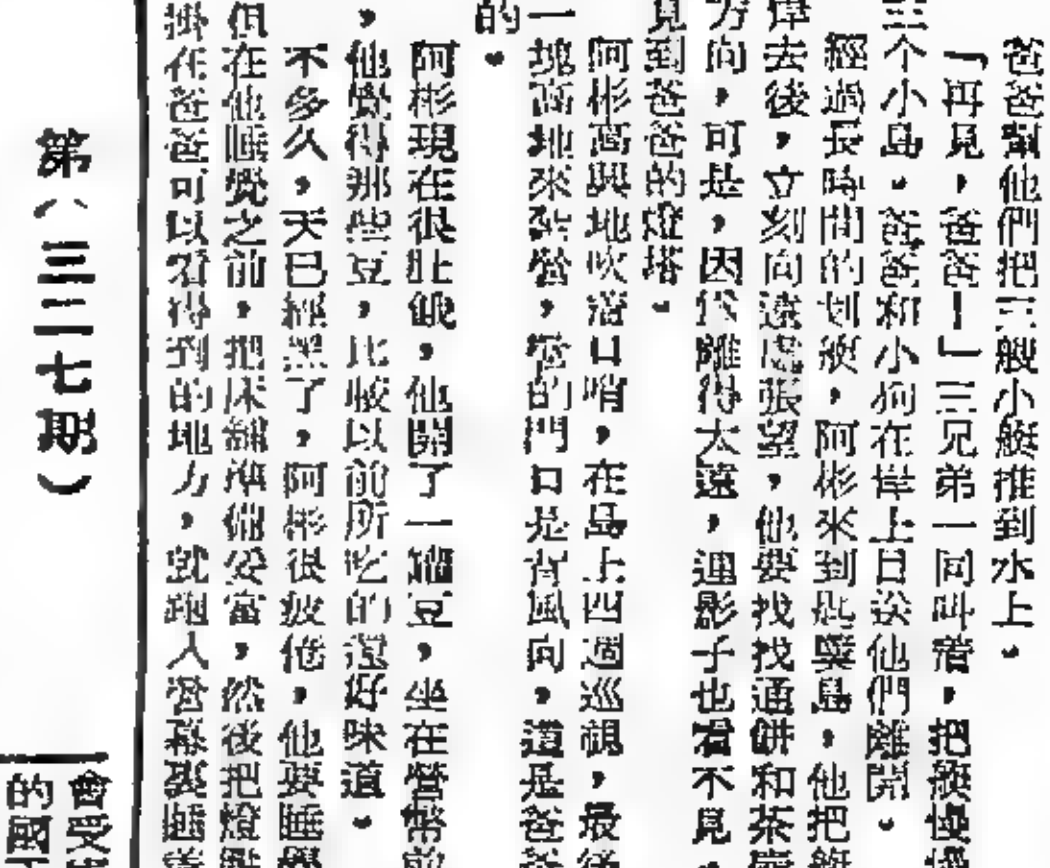 爸爸幫他們把三艘小艇推到水上。
「再見，爸爸！」三兄弟一同叫着，把艇慢慢
三个小島。爸爸和小狗在岸上目送他們離開。
經過長時間的划艇，阿彬來到匙羹島，他把艇
岸去後，立刻向遠處張望，他要找找通餅和茶
方向，可是，因爲離得太遠，連影子也看不見。
見到爸爸的燈塔。
阿彬高興地吹着口哨，在島上四週巡視，最後
一塊高地來紮營，營的門口是背風向，這是爸爸
的。
阿彬現在很肚餓，他開了一罐豆，坐在營幕前
，他覺得那些豆，比較以前所吃的還好味道。
不多久，天已經黑了，阿彬很疲倦，他要睡覺
但在他睡覺之前，把床舖準備妥當，然後把燈
掛在爸爸可以看得到的地方，就跑入營幕裏睡
第（三二七期）
會受
的國